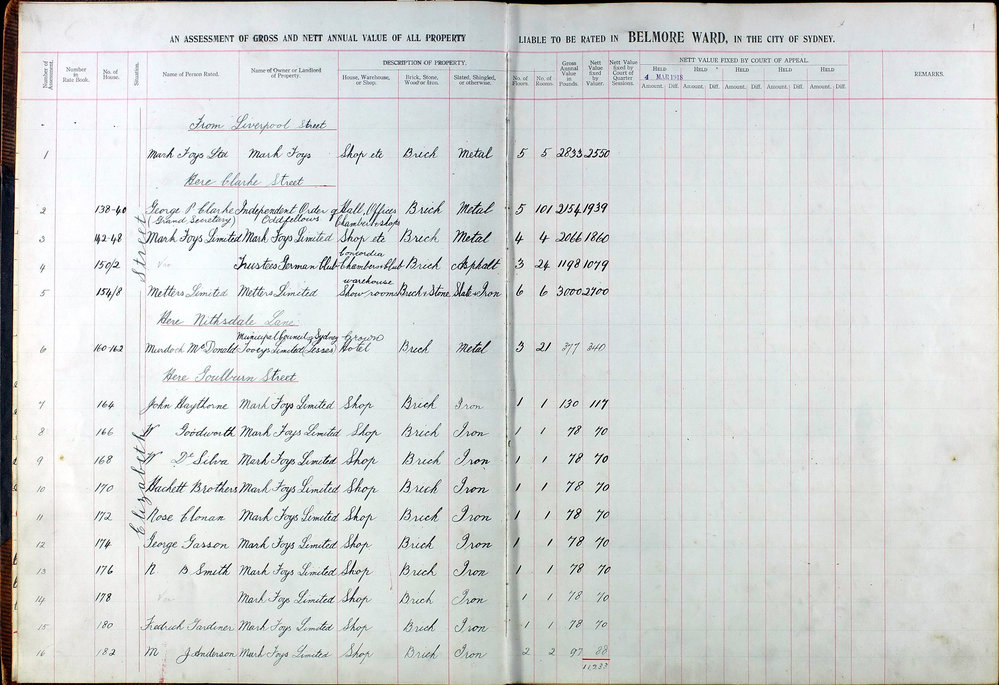 AN ASSESSMENT OF GROSS AND NETT ANNUAL VALUE OF ALL PROPERTY LIABLE TO BE RATED IN BELMORE WARD, IN THE CITY OF SYDNEY.
Number of Assessment. Number in Rate Book. No. of House. Situation. Name of Person Rated. Name of Owner or Landlord of Property. DESCRIPTION OF PROPERTY. House, Warehouse, or Shop. Brick, Stone, Wood or Iron. Slated, Shingled, or otherwise. No. of Floors. No. of Rooms. Gross Annual Value in Pounds. Nett Value fixed by Valuer. Nett Value fixed by Court of Quarter Sessions. NETT VALUE FIXED BY COURT OF APPEAL. REMARKS.
HELD HELD HELD HELD HELD
4 MAR 1918
Amount. Diff. Amount. Diff. Amount. Diff. Amount. Diff. Amount. Diff.
1
Elizabeth Street
From Liverpool Street
1 Mark Foys Ltd Mark Foys Shop etc Brick Metal 5 5 2833 2550
Here Clarke Street
2 138-40 George P Clarke Independent Order of Hall, Offices Brick Metal 5 101 2154 1939
(Grand Secretary) Oddfellows Chambers & shops
3 142-48 Mark Foys Limited Mark Foys Limited Shop etc Brick Metal 4 4 2066 1860
Concordia
4 150/2 Trustees German Club Chambers Club Brick Asphalt 3 24 1198 1079
warehouse
5 154/8 Metters Limited Metters Limited Show rooms Brick & Stone Slate & Iron 6 6 3000 2700
Here Nithsdale Lane
Municipal Council of Sydney Crown
6 160-162 Murdoch McDonald Tooeys Limited (Lesses) Hotel Brick Metal 3 21 377 340
Here Goulburn Street
7 164 John Haythorne Mark Foys Limited Shop Brick Iron 1 1 130 117
8 166 W Goodworth Mark Foys Limited Shop Brick Iron 1 1 78 70
9 168 W De Silva Mark Foys Limited Shop Brick Iron 1 1 78 70
10 170 Hackett Brothers Mark Foys Limited Shop Brick Iron 1 1 78 70
11 172 Rose Clonan Mark Foys Limited Shop Brick Iron 1 1 78 70
12 174 George Gasson Mark Foys Limited Shop Brick Iron 1 1 78 70
13 176 R B Smith Mark Foys Limited Shop Brick Iron 1 1 78 70
14 178 Mark Foys Limited Shop Brick Iron 1 1 78 70
15 180 Fredrick Gardiner Mark Foys Limited Shop Brick Iron 1 1 78 70
16 182 M J Anderson Mark Foys Limited Shop Brick Iron 2 2 97 88
11933